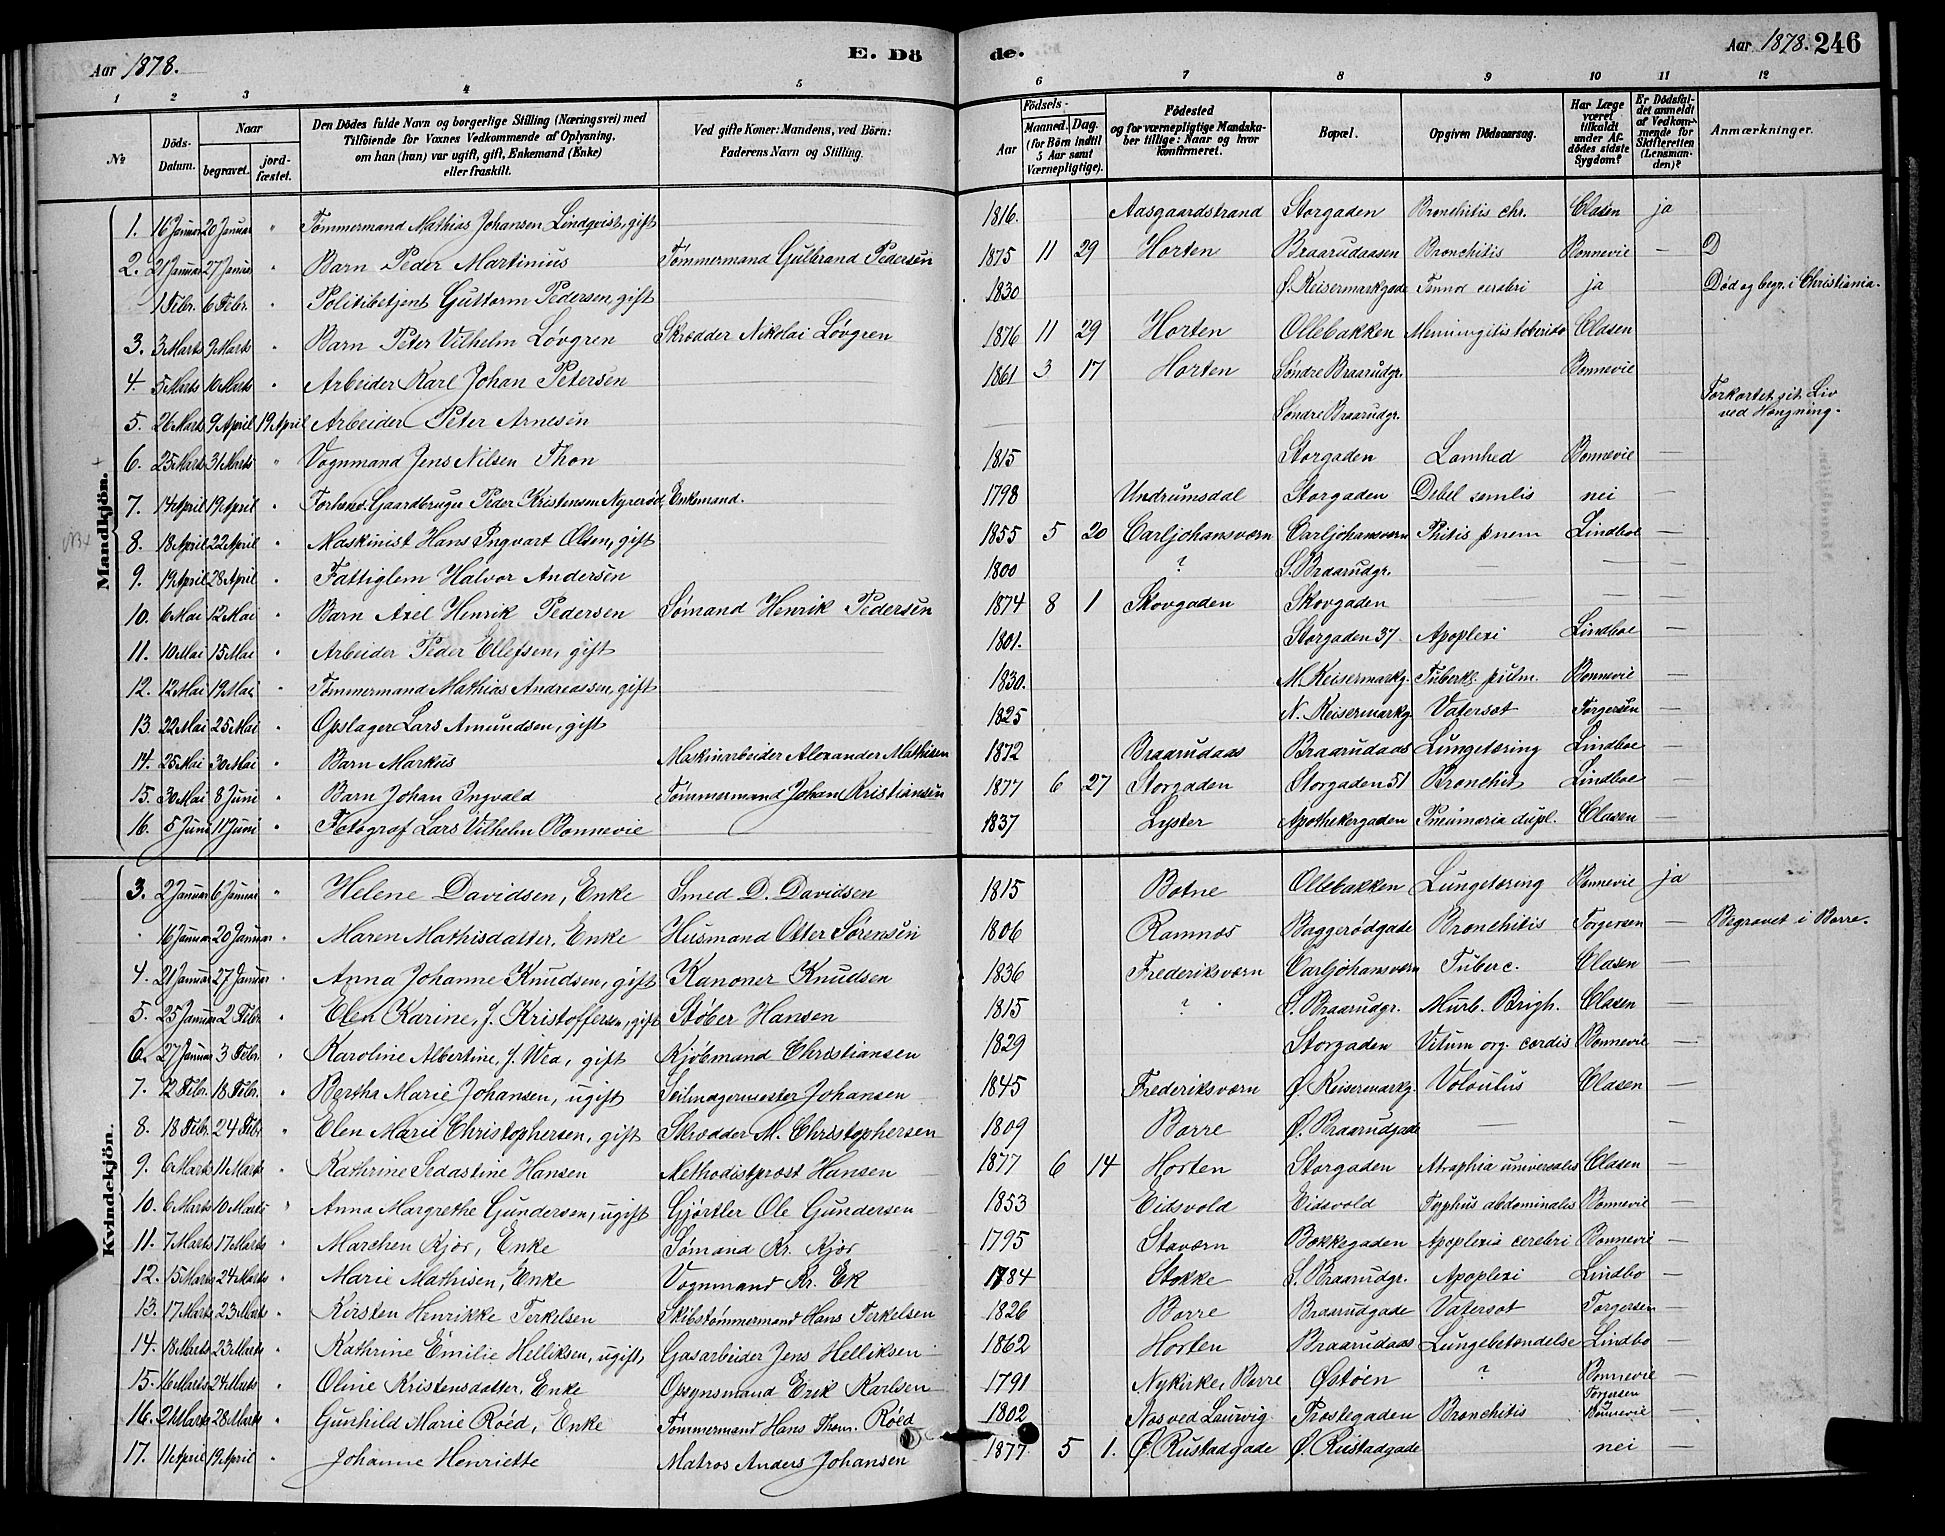 Aar 1878. E. Dö de. Aar 1878. 246
1 2 3 4 5 6 7 8 9 10 11 12
№ Döds-Datum. Naar begravet. jord-fæstet. Den Dödes fulde Navn og borgerlige Stilling (Næringsvei) med Tilföiende for Voxnes Vedkommende af Oplysning, om han (hun) var ugift, gift, Enkemand (Enke) eller fraskilt. Ved gifte Koner: Mandens, ved Börn: Faderens Navn og Stilling. Födsels- Aar Maaned. Dag. (for Börn indtil 5 Aar samt Værnepligtige). Födested og for værnepligtige Mandskaber tillige: Naar og hvor konfirmeret. Bopæl. Opgiven Dödsaarsag. Har Læge været tilkaldt under Afdödes sidste Sygdom? Er Dödsfaldet anmeldt af Vedkommende for Skifteretten (Lensmanden)? Anmærkninger.
Mandkjön.
1. 16 Januar 20 Januar " Tømmermand Mathias Johansen Lindqvist, gift 1816. Aasgaardstrand Storgaden Bronchitis chr. Clasen ja
2. 21 Januar 27 Januar " Barn Peder Martinius Tømmermand Gulbrand Pedersen 1875 11 29 Horten Braarudaasen Bronchitis Bonnevie — D
1 Febr. 6 Febr. " Politibetjent Guttorm Pedersen, gift 1830 Ø. Keisermarkgade cerebri ja Død og begr. i Christiania.
3. 3 Marts 9 Marts " Barn Peter Vilhelm Løvgren Skrædder Nikolai Løvgren 1876 11 29 Horten Ollebakken Clasen
4. 5 Marts 10 Marts " Arbeider Karl Johan Petersen 1861 3 17 Horten Søndre Braarudgr. Bonnevie
5. 26 Marts 9 April 19 April Arbeider Peter Arnesen — Søndre Braarudgr. Forkortet sit Liv ved Hængning.
6. 25 Marts 31 Marts " Vognmand Jens Nilsen Thon 1815 Storgaden Lamhed Bonnevie —
7. 14 April 19 April " Forhenv. Gaardbruger Peder Kristensen Nyrerød, Enkemand. 1798 Undrumsdal Storgaden Debel senilis nei —
8. 18 April 22 April " Maskinist Hans Ingvart Olsen, gift 1855 5 20 Carljohansværn Carljohansværn Phitis pnem Lindboe —
9. 19 April 28 April " Fattiglem Halvor Andersen 1800 ? S. Braarudgr. — — —
10. 6 Mai 12 Mai " Barn Axel Henrik Pedersen Sømand Henrik Pedersen 1874 8 1 Skovgaden Skovgaden — — —
11. 10 Mai 15 Mai " Arbeider Peder Ellefsen, gift 1801. Storgaden 37. Apoplexi Lindboe —
12. 12 Mai 19 Mai " Tømmermand Mathias Andreassen, gift 1830. M. Keisermarkg. Tuberkl. pulm. Bonnevie —
13. 22 Mai 25 Mai " Opslager Lars Amundsen, gift 1825 N. Keisermarkg. Vatersot Torgersen —
14. 25 Mai 30 Mai " Barn Markus Maskinarbeider Alexander Mathisen 1872 Braarudaas Braarudaas Lungetæring Lindboe —
15. 30 Mai 8 Juni " Barn Johan Ingvald Tømmermand Johan Kristiansen 1877 6 27 Storgaden Storgaden 51 Bronchit Lindboe —
16. 5 Juni 11 Juni " Fotograf Lars Vilhelm Bonnevie 1837 Lyster Apothekergaden dupl. Clasen —
Kvindekjön.
3. 2 Januar 6 Januar " Helene Davidsen, Enke Smed D. Davidsen 1815 Botne Ollebakken Lungetæring Bonnevie ja
16 Januar 20 Januar " Maren Mathisdatter, Enke Husmand Otter Sørensen 1806 Ramnæs Baggerødgade Bronchitis Torgersen — Begravet i Borre.
4. 21 Januar 27 Januar " Anna Johanne Knudsen, gift Kanoner Knudsen 1836 Frederiksværn Carljohansværn Tuberc. Clasen —
5. 25 Januar 2 Febr. " Elen Karine, f. Kristoffersen, gift Støber Hansen 1815 ? S. Braarudgr. Morb. Brigh. Clasen —
6. 27 Januar 3 Febr. " Karoline Albertine, f. Wea, gift Kjøbmand Christiansen 1829 Storgaden Vitum org. cordis Bonnevie —
7. 12 Febr. 18 Febr. " Bertha Marie Johansen, ugift Seilmagermester Johansen 1845 Frederiksværn Ø. Keisermarkg. Volvulus Clasen —
8. 18 Febr. 24 Febr " Elen Marie Christophersen, gift Skrædder M. Christophersen 1809 Borre Ø. Braarudgade — —
9. 6 Marts 11 Marts " Kathrine Sedastine Hansen Methodistpræst Hansen 1877 6 14 Horten Storgaden Atraphia universalis Clasen —
10. 6 Marts 10 Marts " Anna Margrethe Gundersen, ugift Gjørtler Ole Gundersen 1853 Eidsvold Eidsvold Typhus abdominalis Bonnevie —
11. 7 Marts 17 Marts " Marchen Kjær, Enke Sømand Kr. Kjær 1795 Staværn Bakkegaden Apoplexia cerebri Bonnevie —
12. 15 Marts 24 Marts " Marie Mathisen, Enke Vognmand Kr. Ek 1784 Stokke S. Braarudgr. Apoplexi Lindbo —
13. 17 Marts 23 Marts " Kirsten Henrikke Terkelsen Skibstømmermand Hans Terkelsen 1826 Borre Braarudgade Vatersot Torgersen —
14. 18 Marts 23 Marts " Kathrine Emilie Helliksen, ugift Gasarbeider Jens Helliksen 1862 Horten Braarudaas Lungebetændelse Lindbo —
15. 16 Marts 24 Marts " Oline Kristensdatter, Enke Opsynsmand Erik Karlsen 1791 Nykirke, Borre Østøen ? Bonnevie —
16. 21 Marts 28 Marts " Gunhild Marie Røed, Enke Tømmermand Hans Thom. Røed 1802 Næs ved Laurvig Præstegaden Bronchitis Torgersen Bonnevie —
17. 11 April 19 April " Johanne Henriette Matros Anders Johansen 1877. 5 1. Ø. Rustadgade Ø. Rustadgade nei —